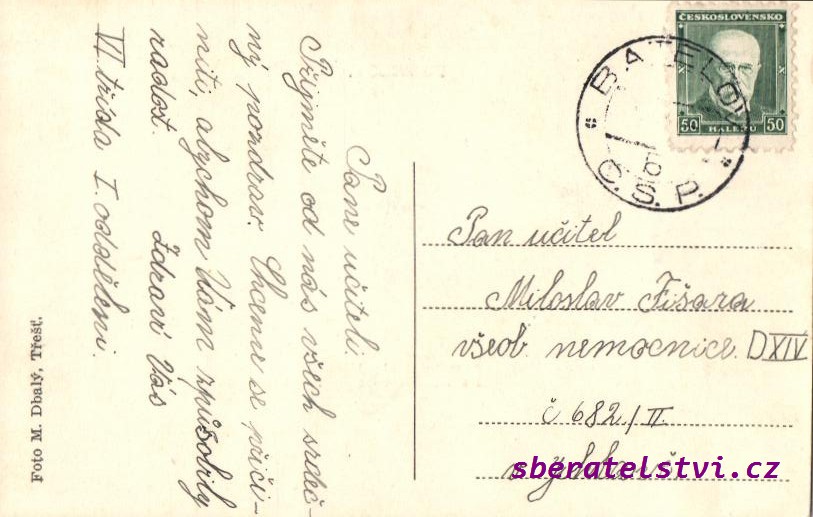 Pane učiteli.
Přijměte od nás všech srdeč-
ný pozdrav. Chceme se přiči-
niti, abychom Vám způsobily
radost. Zdraví Vás
VI. třída I. oddělení.
Foto M. Dbalý, Třešť.
ČESKOSLOVENSKO
50 HALÉŘŮ 50
BATELOV
Č.S.P.
Pan učitel
Miloslav Fišara
všeob. nemocnice. D XIV
č 682/II.
v Jihlavě
sberatelstvi.cz